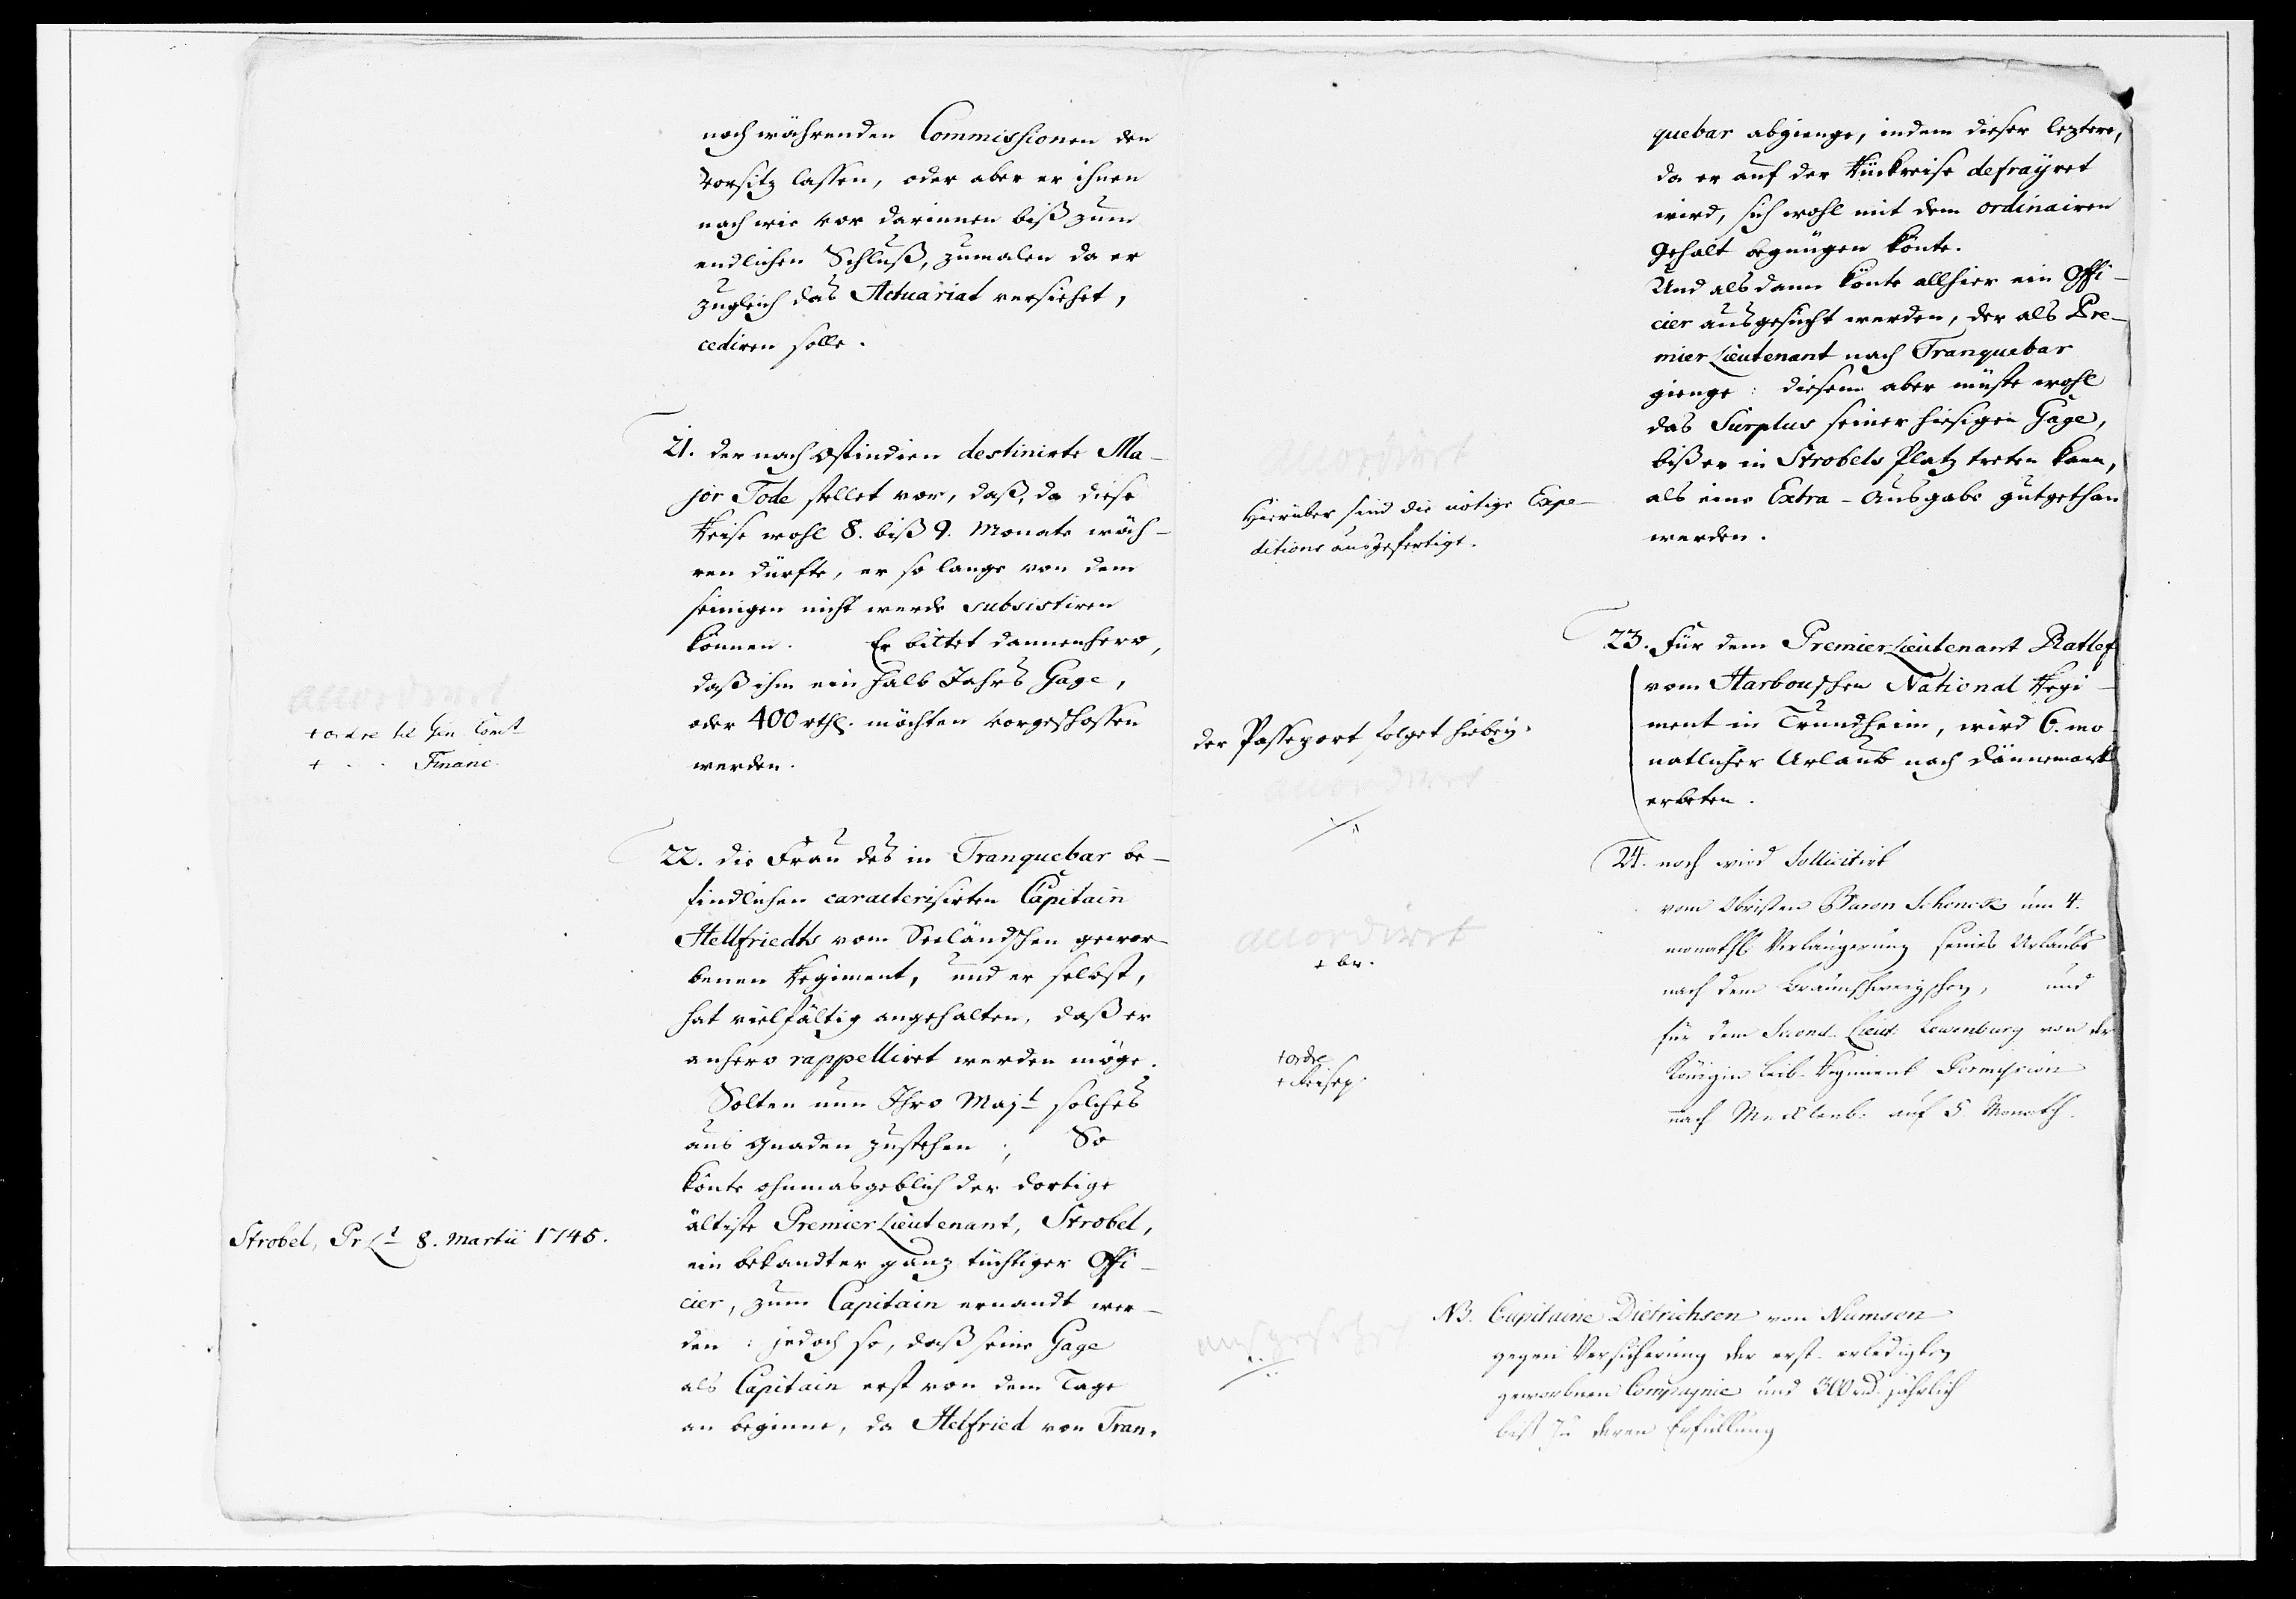 noch währenden Commissionen den
Vorsitz lassen, oder aber er ihnen
nach wie vor darinnen biß zum
endlichen Schluß, zumalen da er
zugleich das Actuariat versiehet,
cediren solle.
21. der nach Ostindien destinirte Ma-
jor Tode stellet vor, daß, da diese
Reise wohl 8. biß 9. Monate wäh-
ren dürfte, er so lange von dem
seinigen nicht werde subsistiren
können. Er bittet dannenhero,
daß ihm ein halb Jahrs Gage,
oder 400 rthl. möchten vorgeschossen
werden.
accordiret
+ ordre til Gen. Com̅t
+ . . Financ.
22. die Frau des in Tranquebar be-
findlichen caracterisirten Capitain
Hellfriedts vom Seeländschen gewor-
benen Regiment, und er selbst,
hat vielfältig angehalten, daß er
anhero rappelliret werden möge.
Solten nun Ihro Majt solches
aus Gnaden zustehen; So
könte ohnmasgeblich der dortige
älteste Premier Lieutenant, Strobel,
ein bekandter ganz tüchtiger Offi-
cier, zum Capitain ernandt wer-
den: jedoch so, daß seine Gage
als Capitain erst von dem Tage
an beginne, da Helfried von Tran-
Strobel, Pr Lt 8. Martii 1745.
quebar abgienge, indem dieser leztere,
da er auf der Rückreise defrayret
wird, sich wohl mit dem ordinairen
Gehalt begnügen könte.
Und alsdann könte allhier ein Offi-
cier ausgesucht werden, der als Pre-
mier Lieutenant nach Tranquebar
gienge: diesem aber müste wohl
das Surplus seiner hiesigen Gage,
biß er in Strobels Platz treten kann,
als eine Extra-Ausgabe gutgethan
werden.
accordiret
Hierüber sind die nötige Expe-
ditions ausgefertigt.
23. Für dem Premier Lieutenant Ratlef
vom Harbouschen National Regi-
ment in Trundheim, wird 6. mo-
natlicher Urlaub nach Dännemark
erbeten.
der Passeport folget hiebey.
accordiret
24. noch wird sollicitirt
vom Obristen Baron Schenck um 4.
monathl. Verlängerung seines Urlaubs
nach dem Braunschweigschen, und
für dem Second-Lieut: Lewenburg von der
Königin Leib-Regiment Permission
nach Mecklenb: auf 5. Monath.
accordiret
+ br.
+ ordre
+ Reisep.
NB. Capitaine Dietrichsen von Numsen
gegen Versicherung der erst-erledigten
geworbnen Compagnie und 300 rd. jährlich
biß zu deren Erfüllung